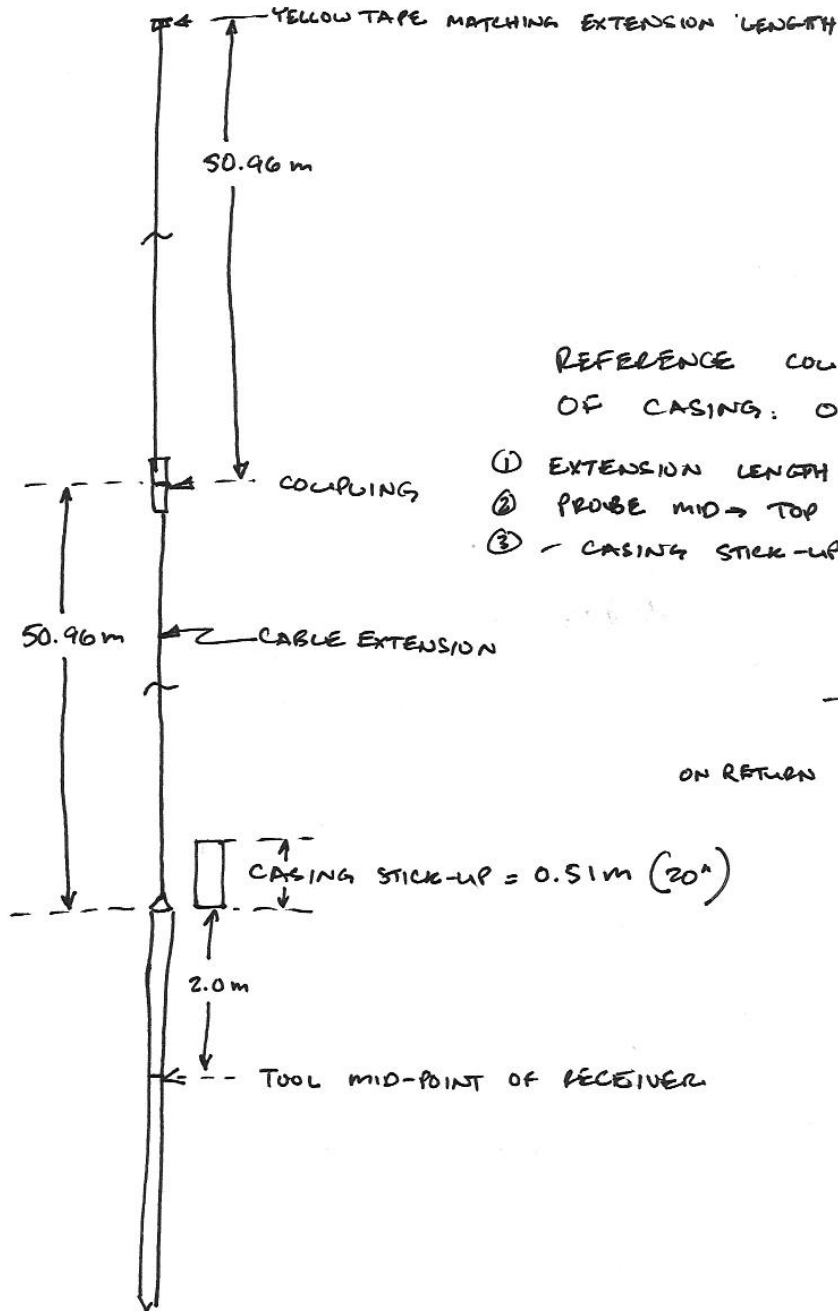 YELLOW TAPE MATCHING EXTENSION LENGTH
50.96 m
REFERENCE COU
OF CASING: O
① EXTENSION LENGTH
② PROBE MID → TOP
③ - CASING STICK-UP
COUPLING
50.96 m
CABLE EXTENSION
ON RETURN
CASING STICK-UP = 0.51m (20")
2.0 m
TOOL MID-POINT OF RECEIVER